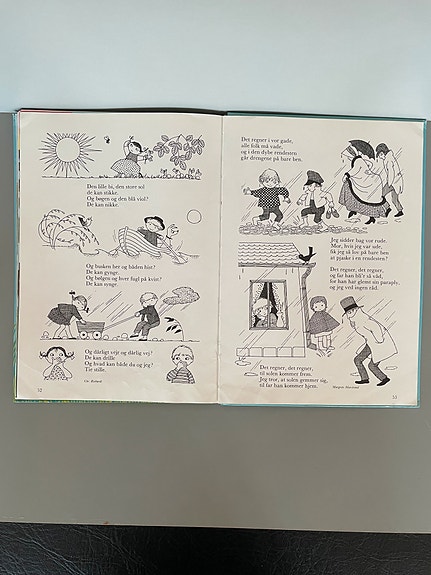 Den lille bi, den store sol
de kan stikke.
Og bøgen og den blå viol?
De kan nikke.
Og busken her og båden hist?
De kan gynge.
Og bølgen og hver fugl på kvist?
De kan synge.
Og dårligt vejr og dårlig vej?
De kan drille
Og hvad kan både du og jeg?
Tie stille.
52
Det regner i vor gade,
alle folk må vade,
og i den dybe rendesten
går drengene på bare ben.
Jeg sidder bag vor rude.
Mor, hvis jeg var ude,
fik jeg så lov på bare ben
at pjaske i en rendesten?
Det regner, det regner,
og far han bli'r så våd,
for han har glemt sin paraply,
og jeg ved ingen råd.
Det regner, det regner,
til solen kommer frem.
Jeg tror, at solen gemmer sig,
til far han kommer hjem.
53